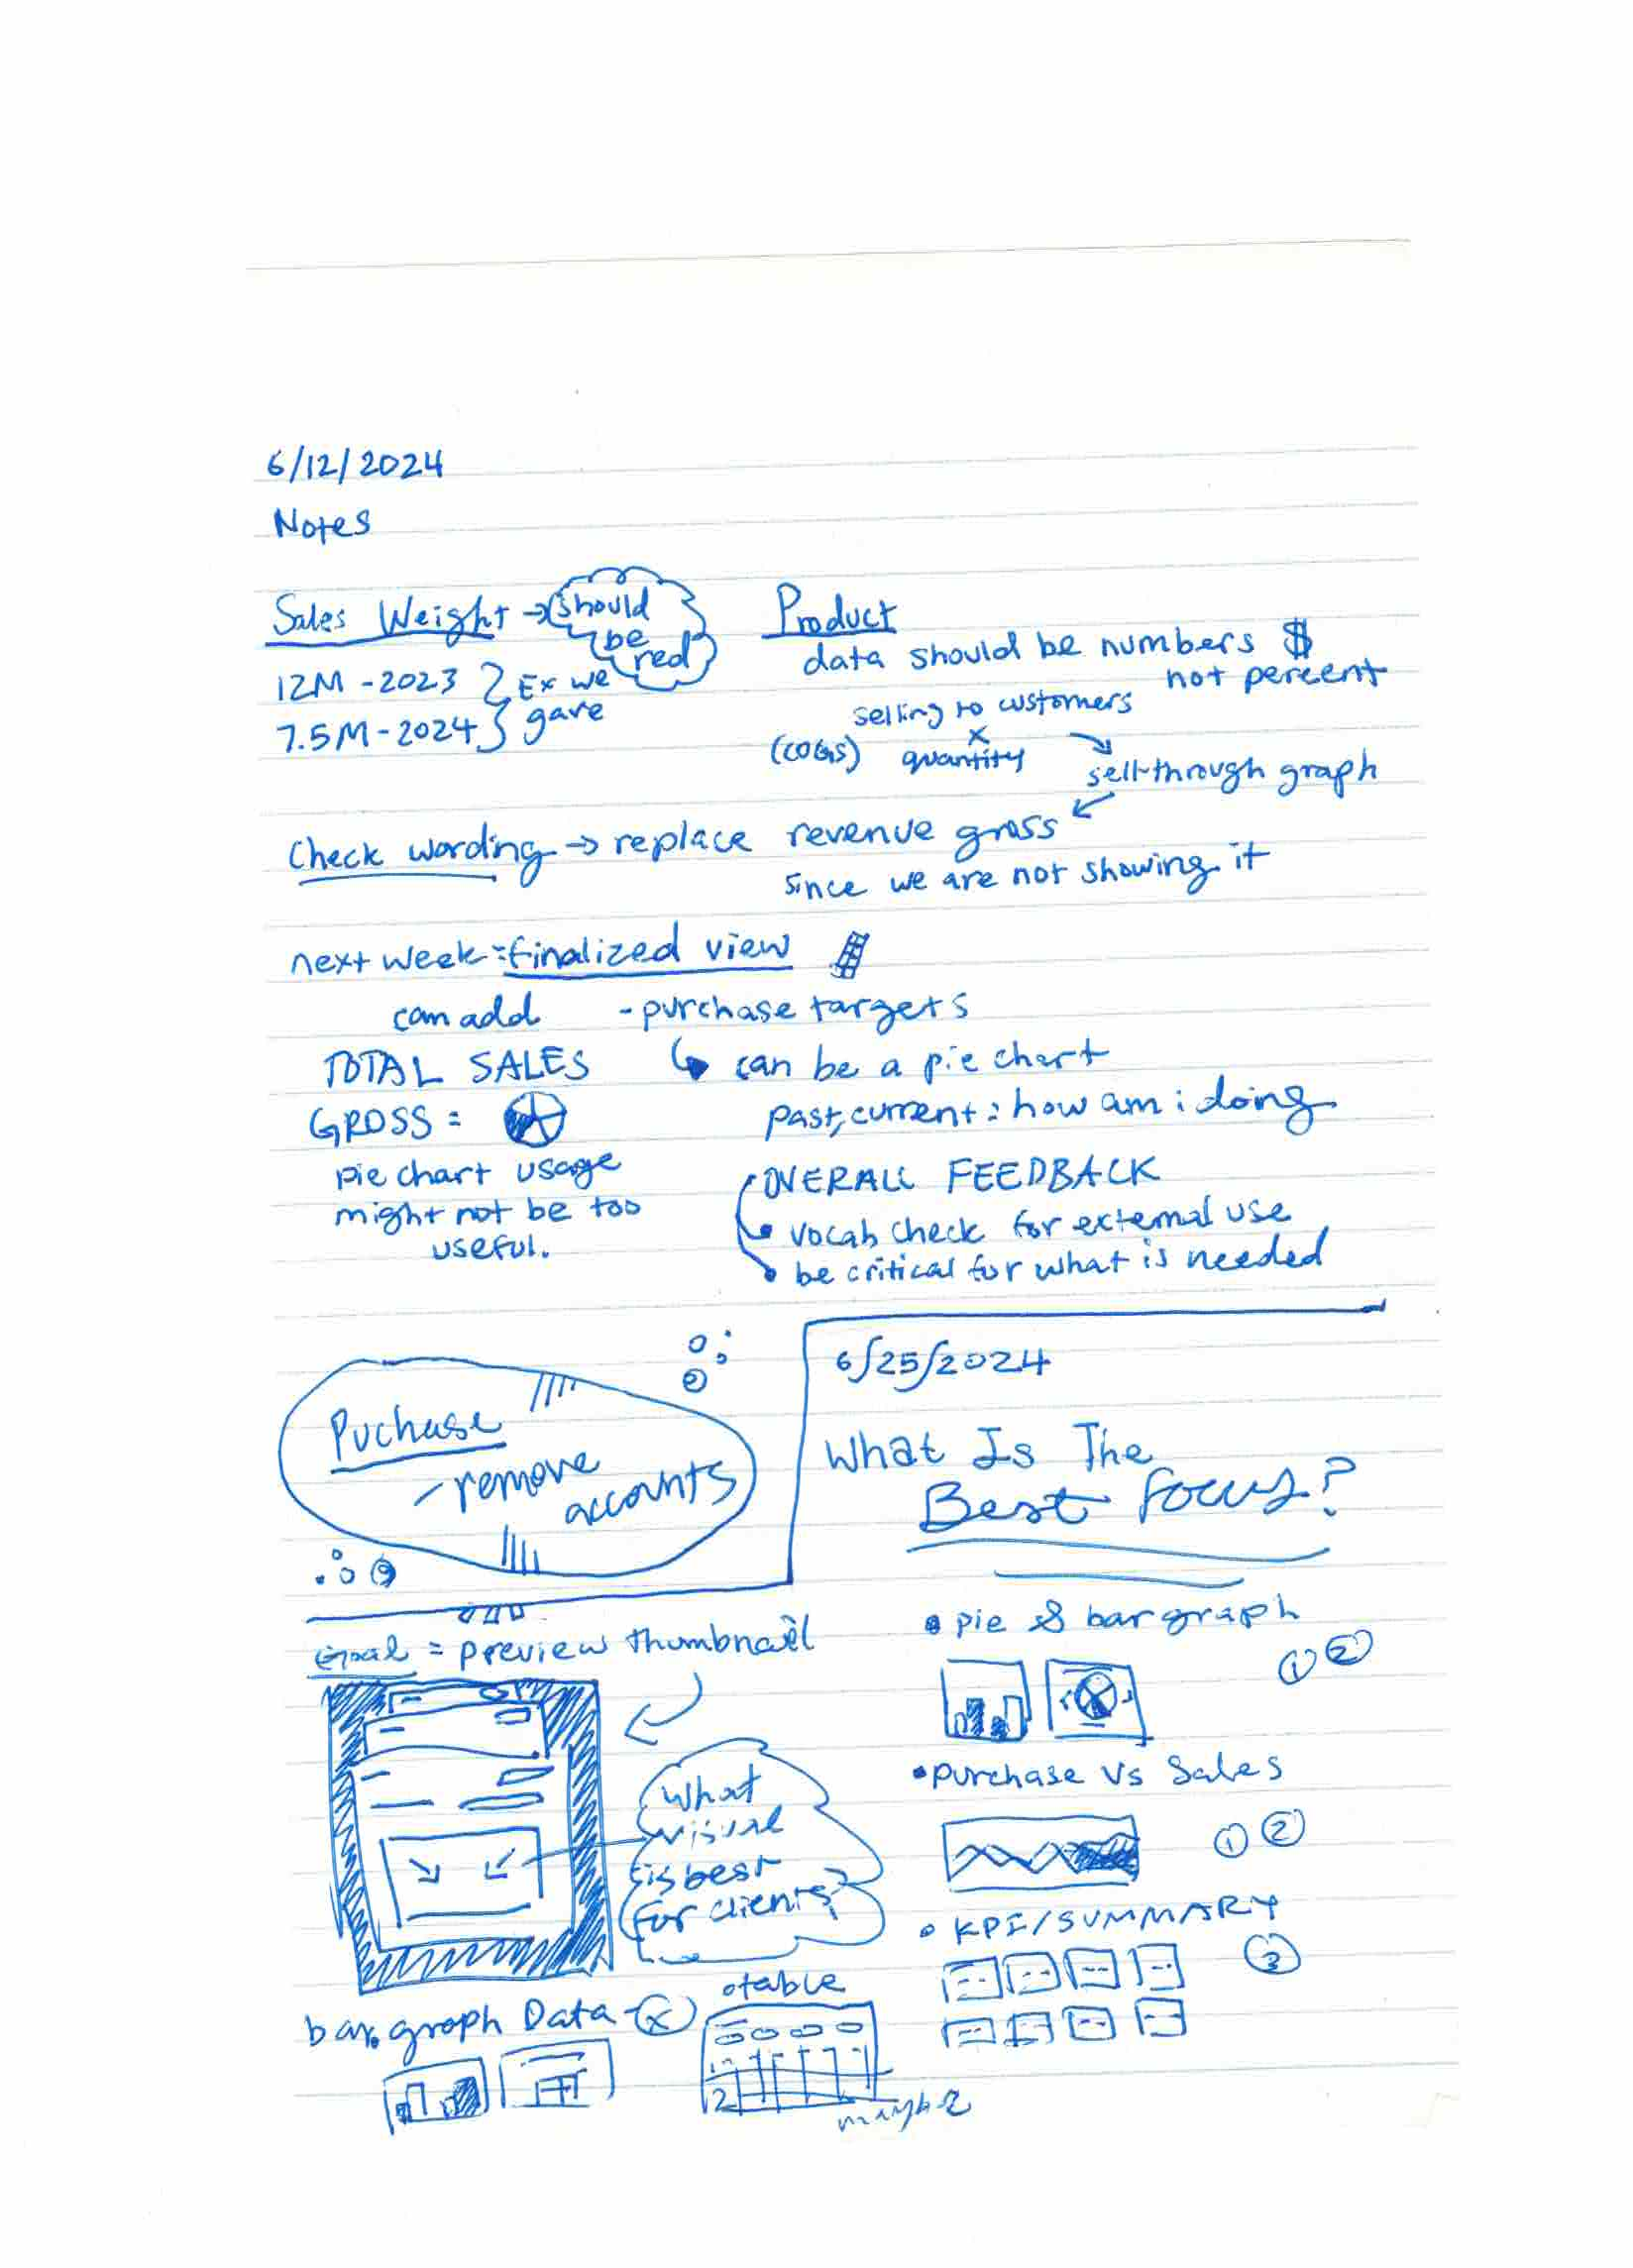 6/12/2024
Notes
Sales Weight → should
be
red
12M - 2023 } Ex we
7.5M - 2024 } gave
Product
data should be numbers $
not percent
selling to customers
x
(COGS) quantity
sell-through graph
Check wording → replace revenue gross
since we are not showing it
next week = finalized view
can add - purchase targets
TOTAL SALES
↳ can be a pie chart
past, current : how am i doing
GROSS =
pie chart usage
might not be too
useful.
OVERALL FEEDBACK
vocab check for external use
be critical for what is needed
Puchase
- remove
accounts
6/25/2024
What Is The
Best Focus?
Goal = preview thumbnail
What
visual
is best
for clients?
bar graph Data - x
• table
1
2
maybe
• pie & bar graph
① ②
• Purchase vs Sales
① ②
• KPI/SUMMARY
③